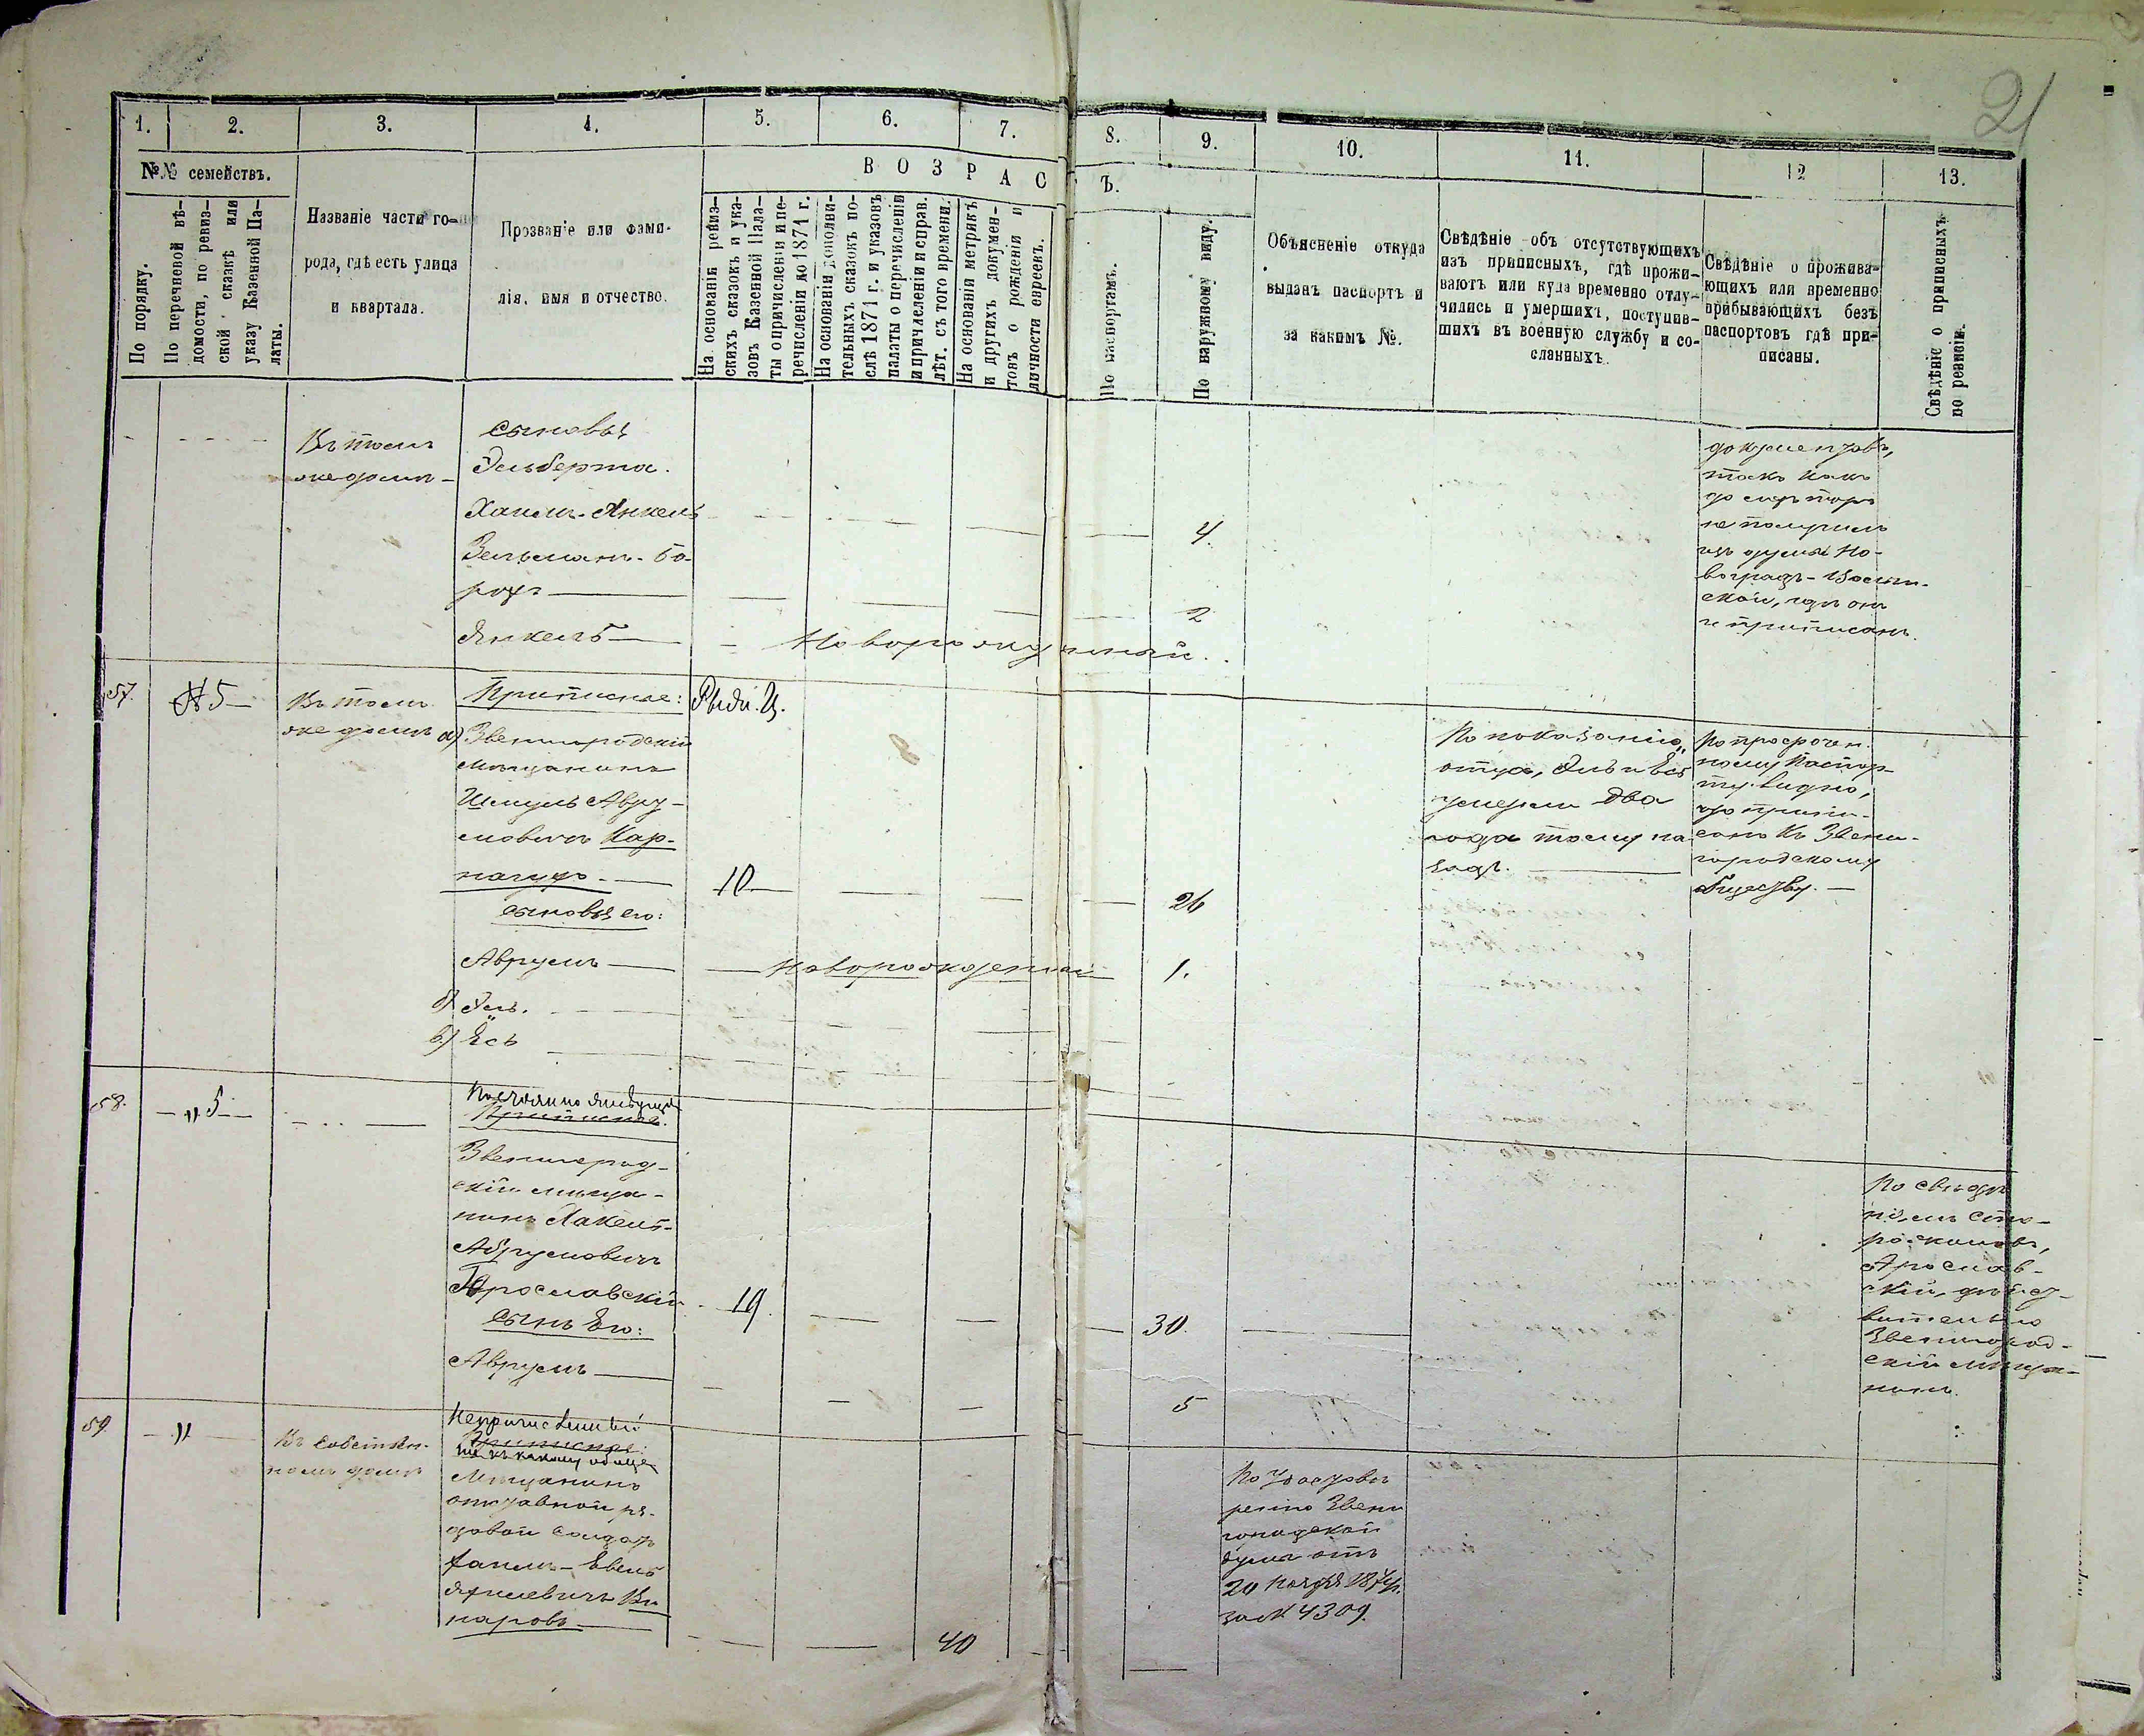 21
1. 2. 3. 4. 5. 6. 7. 8. 9. 10. 11. 12 13.
№№ семействъ.
По порядку.
По перечневой вѣ-
домости, по ревиз-
ской сказкѣ или
указу Казенной Па-
латы.
Названіе части го-
рода, гдѣ есть улица
и квартала.
Прозваніе или фами-
лія, имя и отчество.
ВОЗРАСТЪ.
На основаніи ревиз-
скихъ сказокъ и ука-
зовъ Казенной Пала-
ты о причисленіи и пе-
речисленіи до 1871 г.
На основаніи дополни-
тельныхъ сказокъ по-
слѣ 1871 г. и указовъ
палаты о перечисленіи
и причисленіи и справ.
лѣт. съ того времени.
На основаніи метрикъ
и другихъ докумен-
товъ о рожденіи и
личности евреевъ.
По паспортамъ.
По наружному виду.
Объясненіе откуда
выданъ паспортъ и
за какимъ №.
Свѣдѣніе объ отсутствующихъ
изъ приписныхъ, гдѣ прожи-
ваютъ или куда временно отлу-
чились и умершихъ, поступив-
шихъ въ военную службу и со-
сланныхъ.
Свѣдѣніе о прожива-
ющихъ или временно
прибывающихъ безъ
паспортовъ гдѣ при-
писаны.
Свѣдѣніе о приписныхъ
по ревизіи.
Въ томъ
же домѣ
Сыновья
Эльберта.
Хаимъ-Янкель
4.
Зельманъ-Бо-
рухъ
2
Янкель
Новорожденный.
документовъ,
такъ какъ
до сихъ поръ
не получилъ
изъ думы Но-
воградъ-Волын-
ской, гдѣ онъ
и приписанъ.
57. №5
Въ томъ
же домѣ
Приписные:
а) Звенигородскій
мѣщанинъ
Шмуль Авру-
мовичъ Кар-
10 26
сыновья его:
Аврумъ Новорожденный 1.
б) Эль.
в) Ёсь
По показанію
отца, Эль и Ёсь
умерли два
года тому на-
задъ.
По просрочен-
ному паспор-
ту видно,
что припи-
санъ къ Звени-
городскому
обществу.
58. " 5
Постоянно живущіе
Приписные.
Звенигород-
скій мѣща-
нинъ
Аврумовичъ
Ярославскій 19. 30.
Сынъ Его:
Аврумъ 5
По свѣдѣ-
ніямъ сто-
роживовъ,
Ярослав-
скій, дѣйст-
вительно
Звенигород-
скій мѣща-
нинъ.
59 "
Въ собствен-
номъ домѣ
Непричисленный
Приписные:
ни къ какому обще
Мѣщанинъ
отставной ря-
довой солдатъ
Хаимъ-
Ви
наровъ 40
По удостовѣ
ренію Звени
городской
думы отъ
20 Ноября 187 г.
за № 4309.